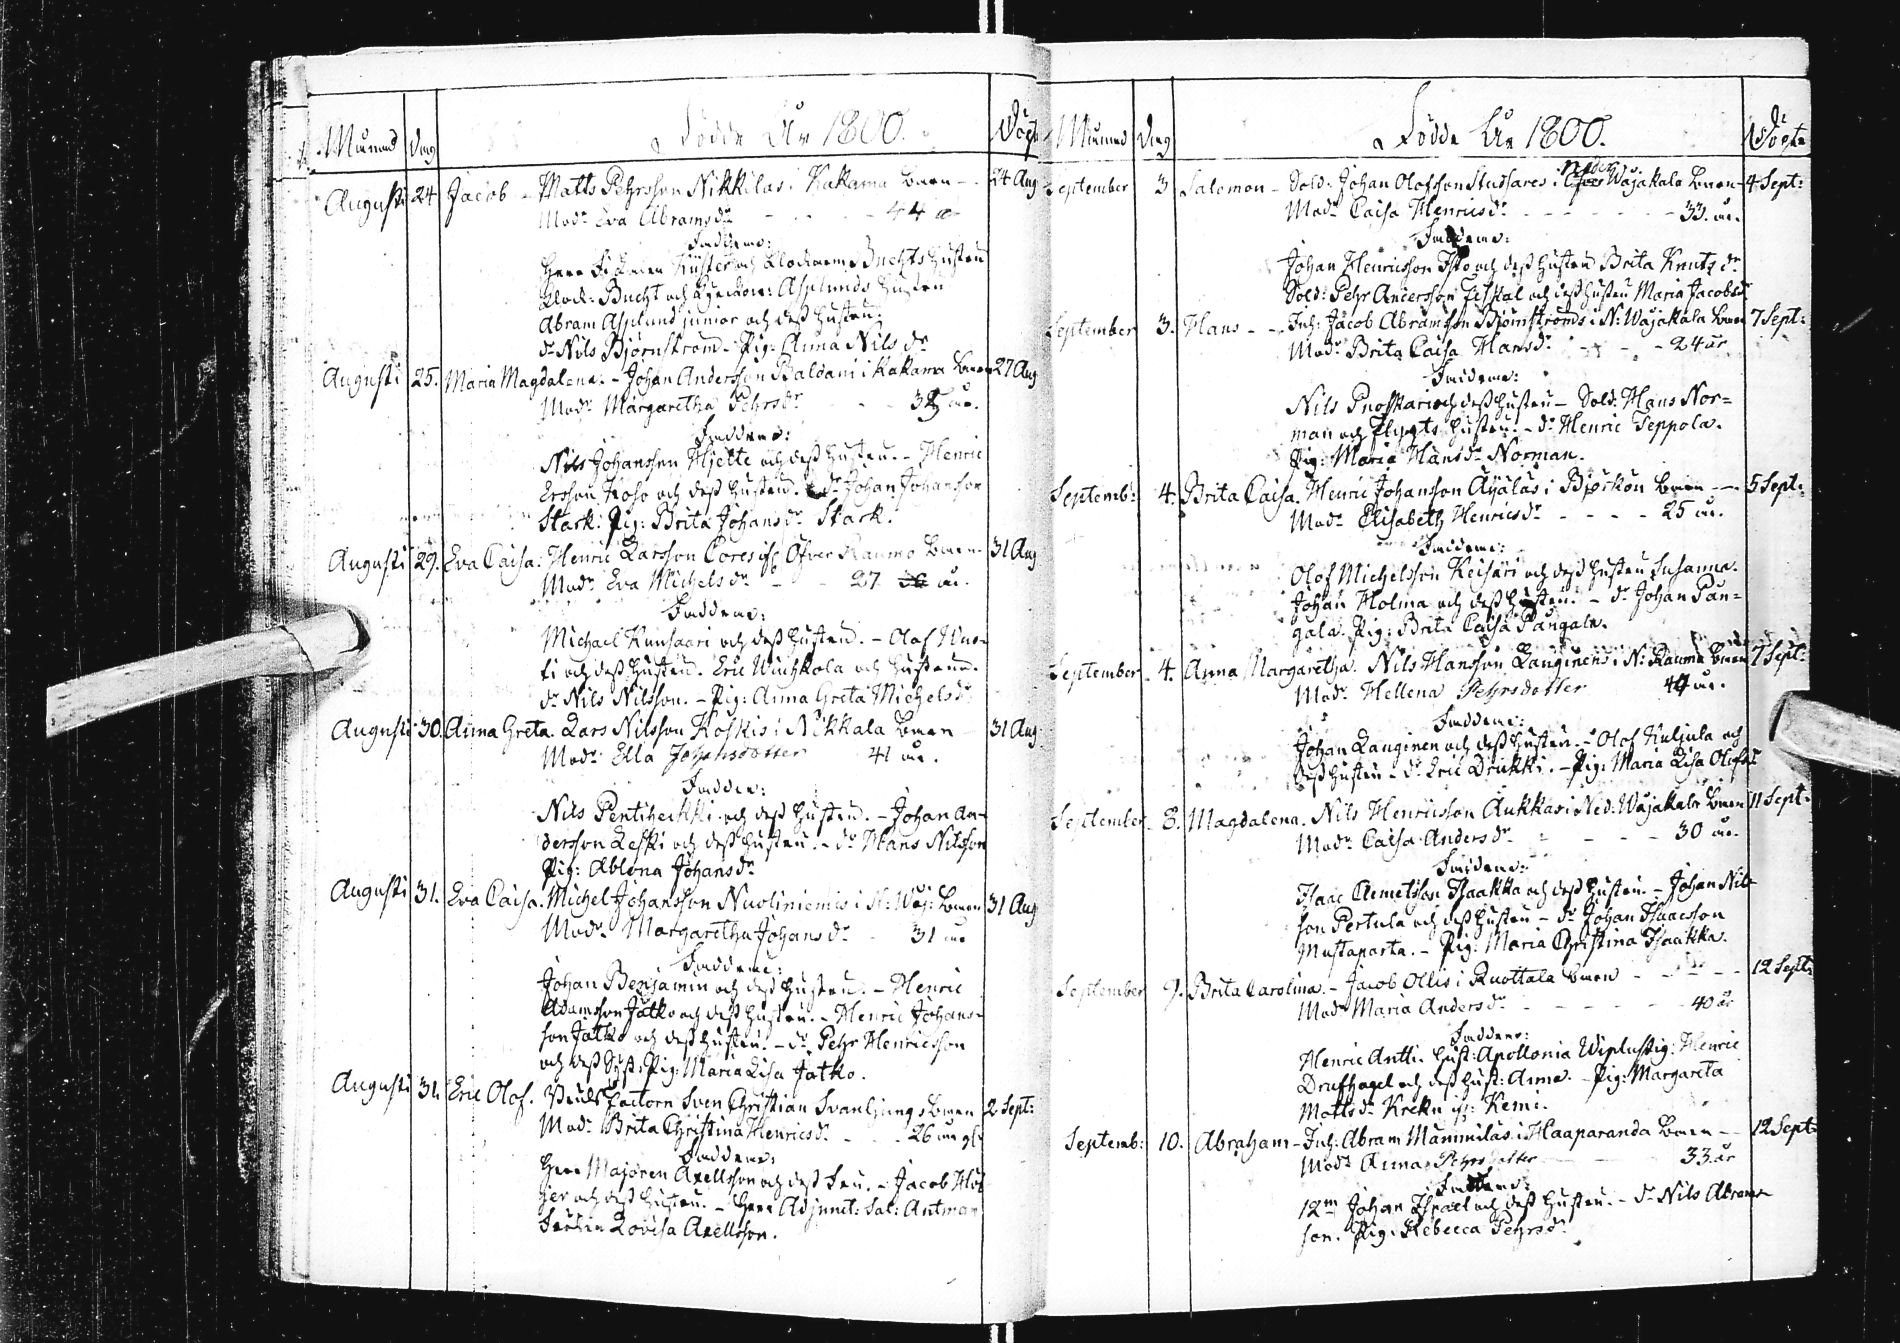 Födde År 1800.
Månad Dag Döpt
Augusti 24 Jacob - Matts Pehrsson Nikkilas i Kakama Barn - 24 Aug
Modr Eva Abramsdr - - - 44 år
Faddrar:
Herr Küster och Klockaren Buchts hustru
Klock: Bucht och Asplunds hustru
Abram Asplund junior och dess hustru.
dr Nils Björnström - Pig: Anna Nilsdr
Augusti 25. Maria Magdalena. - Johan Andersson Baldani i Kakama Barn 27 Aug
Modr Margaretha Pehrsdr - - år.
Faddrar:
Nils Johansson Hjette och dess hustru. - Henric
Ersson Koso och dess hustru. dr Johan Johansson
Stark. Pig: Brita Johansdr Stark.
Augusti 29. Eva Caisa. Henric Larsson i Öfver Raumo Barn 31 Aug
Modr Eva Michelsdr - - 27 år.
Faddrar:
Michael Kunsaari och dess hustru. - Olof
och dess hustru. Eric Wuhkola och hustrun.
dr Nils Nilsson. - Pig: Anna Greta Michelsdr
Augusti 30. Anna Greta. Lars Nilsson Koskis i Nikkala Barn 31 Aug
Modr Ella Johansdotter 41 år.
Faddrar:
Nils Pentiheikki och dess hustru. - Johan An-
dersson Leski och dess hustru. - dr Hans Nilsson
Pig: Ablona Johansdr
Augusti 31. Eva Caisa. Michel Johansson Nuoliniemis i N: Wäj: Barn 31 Aug
Modr Margaretha Johansdr - 31 år
Faddrar:
Johan Benjamin och dess hustru. - Henric
Adamsson Jatko och dess hustru. - Henric Johans-
son Jatko och dess hustru. - dr Pehr Henricsson
och dess Syst: Pig: Maria Lisa Jatko.
Augusti 31. Eric Olof. factorn Sven Christian Svanljungs Barn 2 Sept:
Modr Brita Christina Henricsdr - - 26 år gl:
Faddrar:
Herr Majoren Axellsson och dess Fru. - Jacob
och dess hustru. - Herr Adjunct: Sal: Antman
Lovisa Axellsson.
Födde År 1800.
Månad Dag Döpte
September 3 Salomon - Sold: Johan Olofsson Stussares i Neder Wojakala Barn - 4 Sept:
Modr Caisa Henricsdr - - - 33. år.
Faddrar:
Johan Henricsson Isto och dess hustru Brita Knutsdr
Sold: Pehr Andersson Fiskal och dess hustru Maria Jacobsdr
September 3. Hans - - Inh: Jacob Abramsson Björnströms i N: Wäjakala Barn 7 Sept:
Modr Brita Caisa Hansdr - - - 24 år
Faddrar:
Nils och dess hustru - Sold: Hans Nor-
man och Flygts hustru. - dr Henric Seppola.
Pig: Maria Hansdr Norman.
Septemb: 4. Brita Caisa. Henric Johansson Äyäläs i Björkön Barn - - 5 Sept:
Modr Elisabeth Henricsdr - - - - 25 år.
Faddrar:
Olof Michelsson Keisari och dess hustru Susanna.
Johan Holma och dess hustru. - dr Johan Pan-
gala. Pig: Brita Caisa Pangala.
September 4. Anna Margaretha. Nils Hansson Langinens i N: Rauma Barn 7 Sept:
Modr Hellena Pehrsdotter 44 år.
Faddrar:
Johan Langinen och dess hustru. - Olof Kuljula och
dess hustru - dr Eric Drickki. - Pig: Maria Lisa Olofsdr
September 8. Magdalena. Nils Henricsson Aukkas i Ned: Wäjakala Barn 11 Sept:
Modr Caisa Andersdr - - - 30 år.
Faddrar:
Isaac Clemetsson Isaakka och dess hustru. - Johan Nils-
son Pertula och dess hustru - dr Johan Isaacsson
Mustaparta. - Pig: Maria Christina Isaakka.
September 9. Brita Carolina. - Jacob Ollis i Ruottala Barn - - - - 12 Sept:
Modr Maria Andersdr - - - 40 år
Faddrar:
Henric Antti. Hust: Apollonia Henric
Drufhagel och dess hust: Anna. - Pig: Margareta
Mattsdr Kreku ifr: Kemi.
Septemb: 10. Abraham - Inh: Abram Mämmiläs i Haaparanda Barn - - 12 Sept:
Modr Anna Pehrsdotter 33 år
Faddrar:
12m Johan Israel och dess hustru. - dr Nils Abrams-
son. Pig: Rebecca Pehrsdr